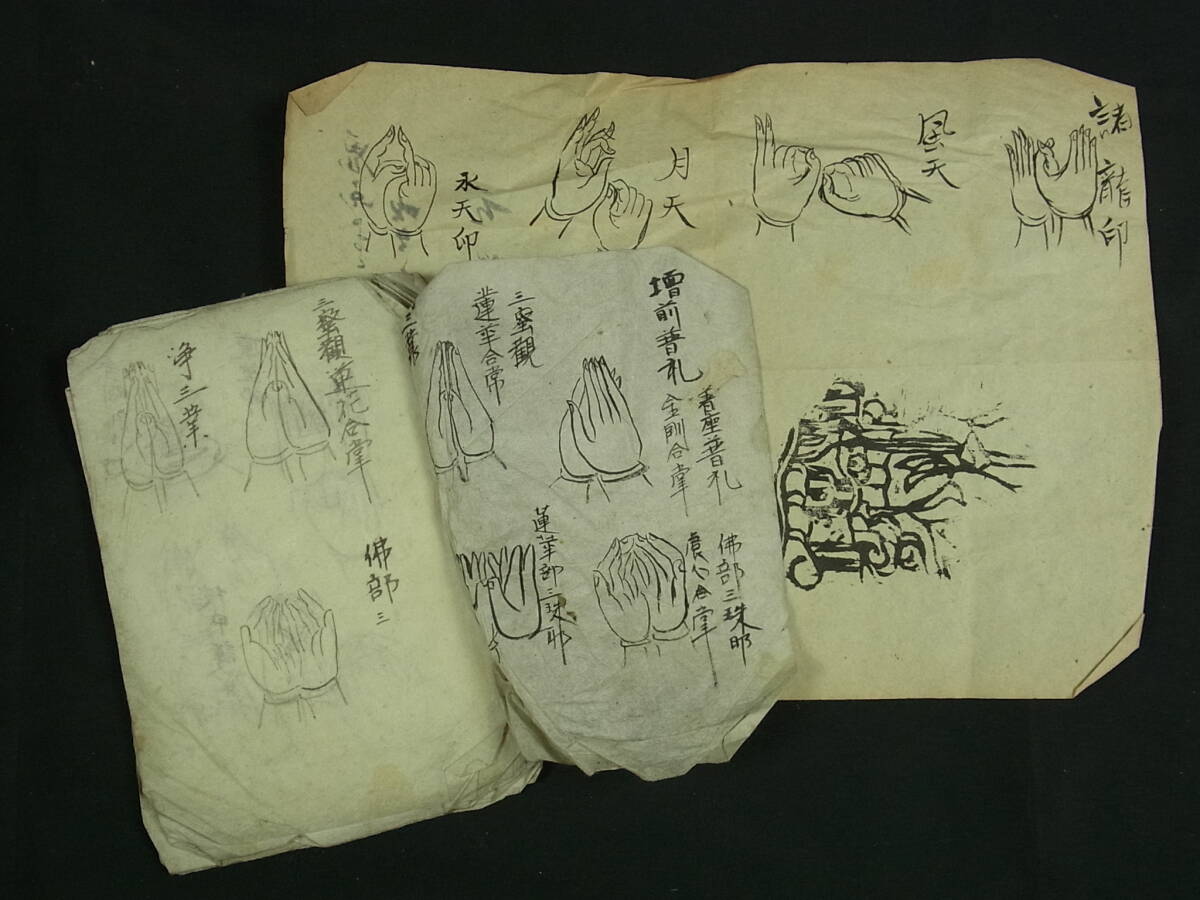 諸龍印
風天
月天
水天印
壇前普礼
着座普礼
金剛合掌
三蜜観
蓮華合掌
佛部三珠耶
虚心合掌
蓮華部三珠耶
三蜜觀蓮花合掌
浄三業
佛部三